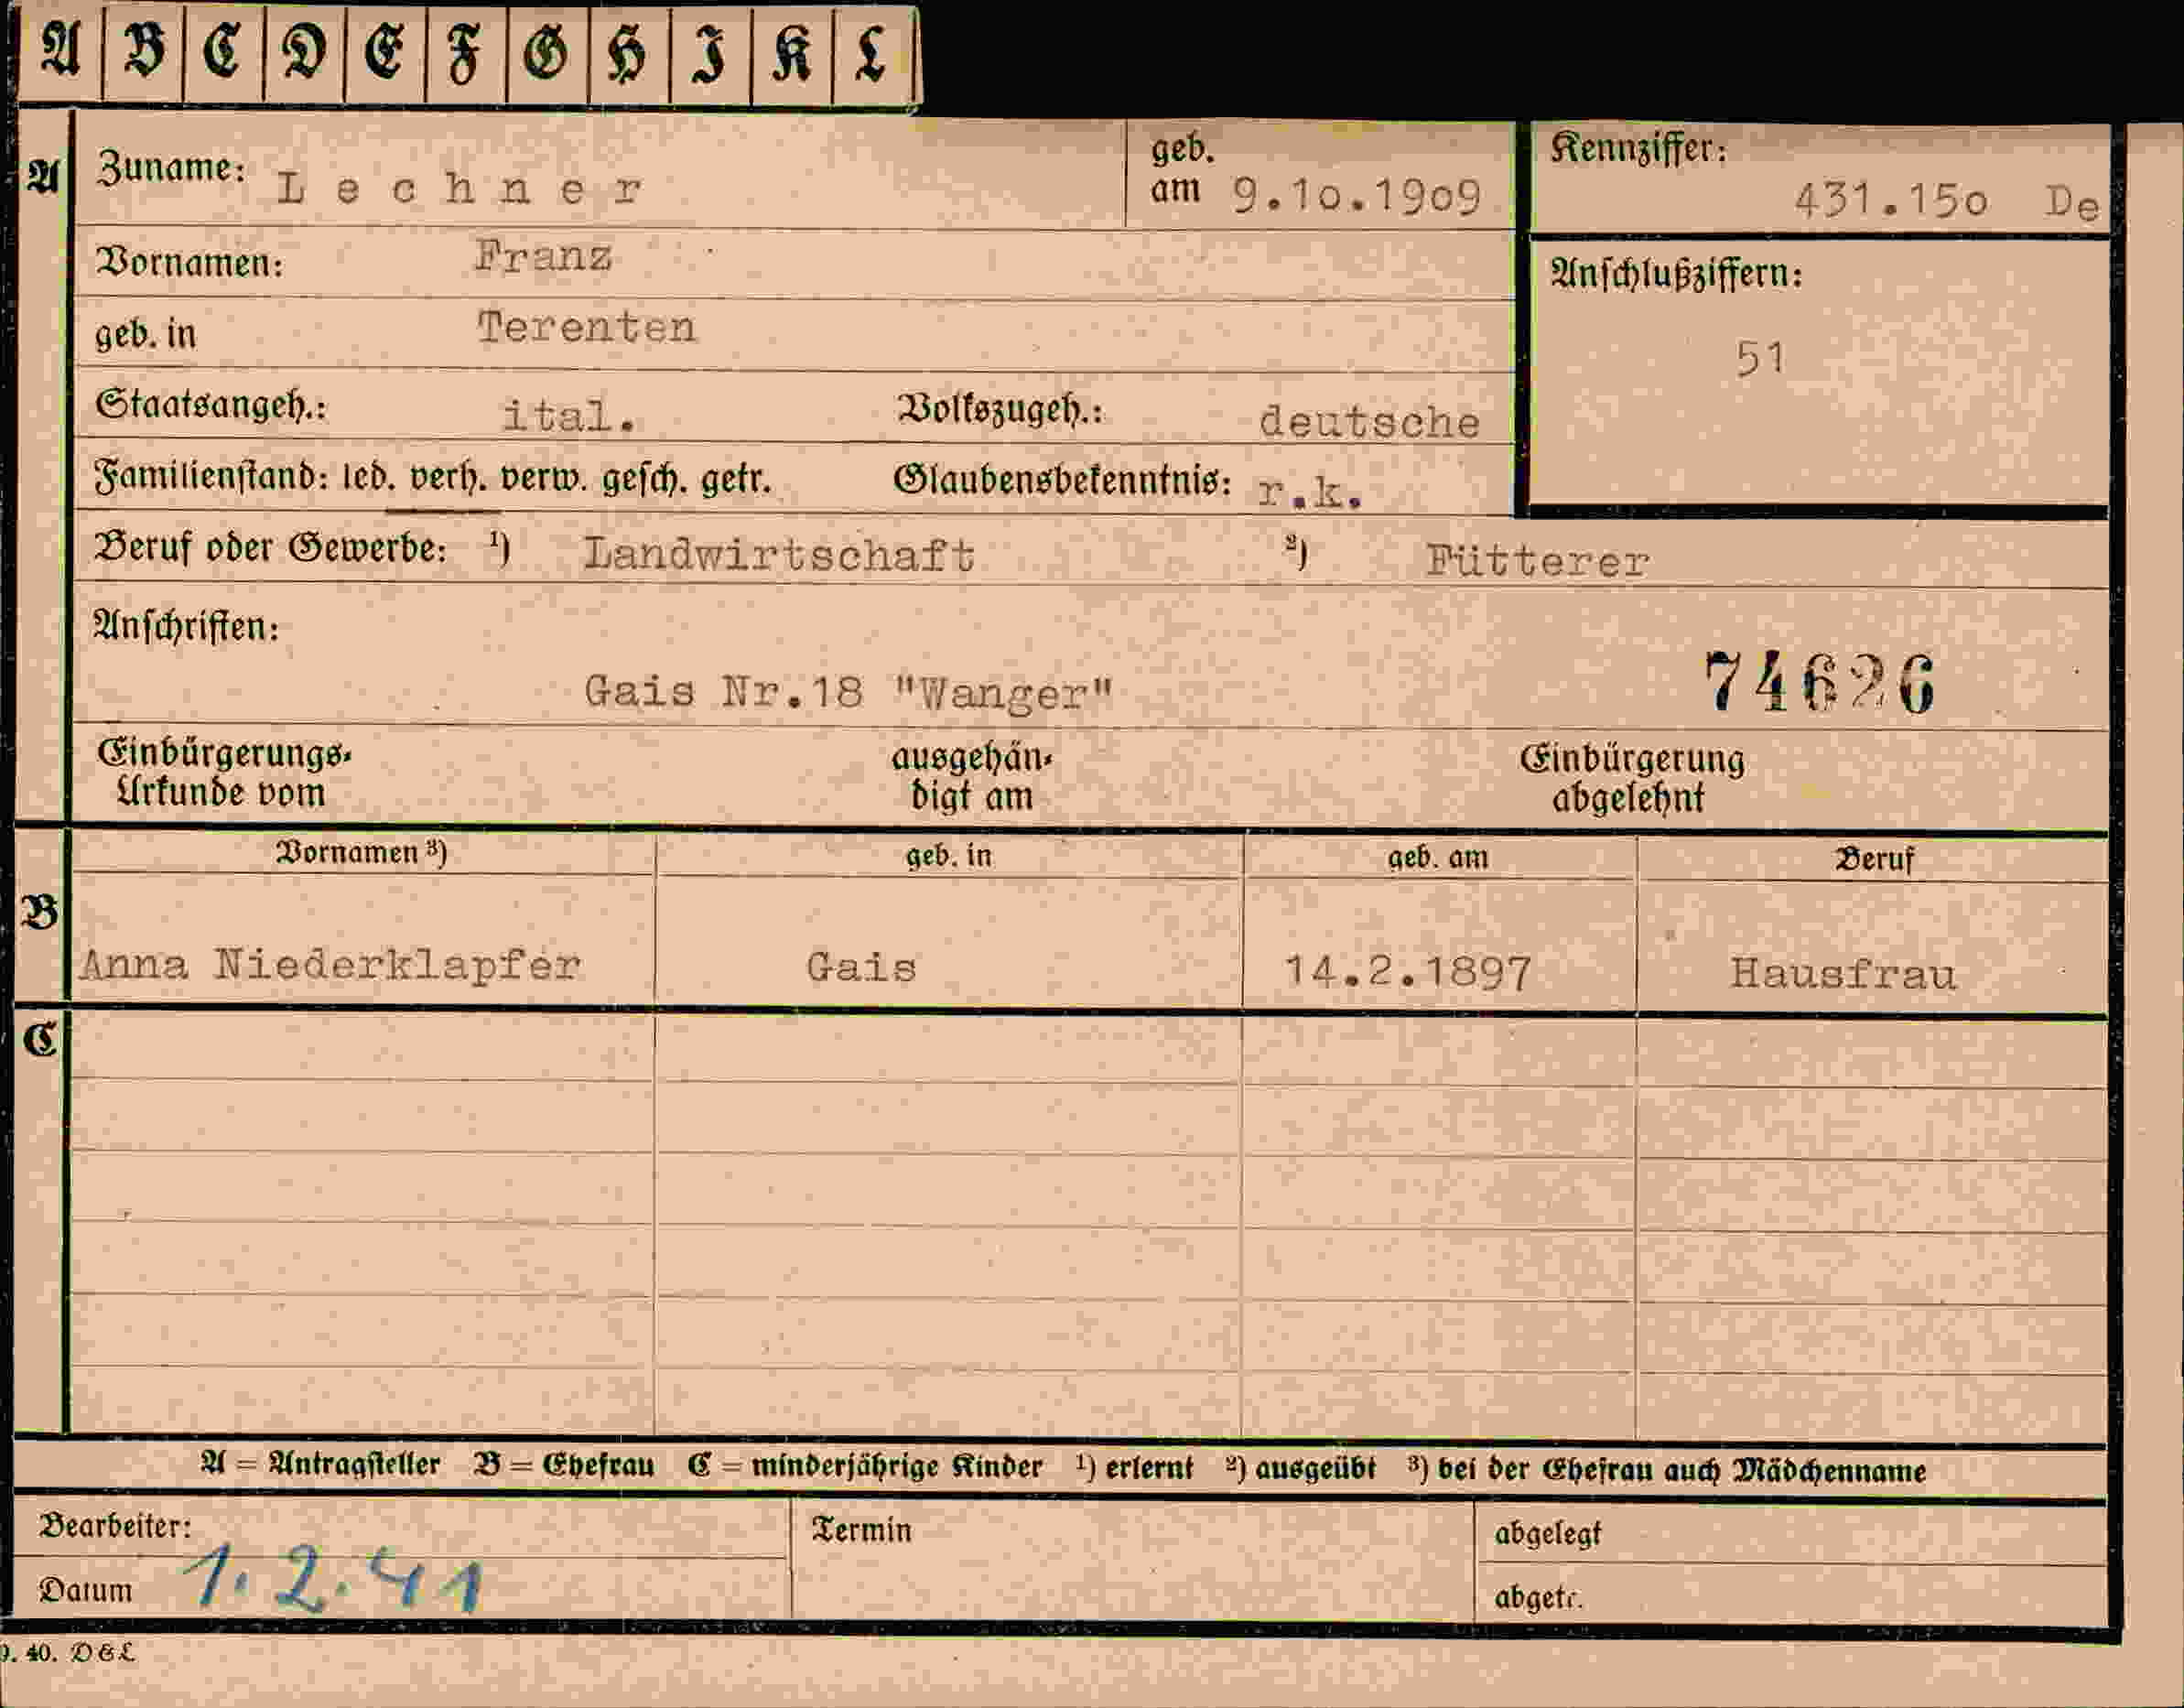 A B C D E F G H I K L
A
Zuname: Lechner
geb. am 9.10.1909
Kennziffer: 431.150 De
Vornamen: Franz
Anschlußziffern: 51
geb. in Terenten
Staatsangeh.: ital. Volkszugeh.: deutsche
Familienstand: led. verh. verw. gesch. getr. Glaubensbekenntnis: r.k.
Beruf oder Gewerbe: ¹) Landwirtschaft ²) Fütterer
Anschriften:
Gais Nr.18 "Wanger" 74626
Einbürgerungs-
Urkunde vom
ausgehän-
digt am
Einbürgerung
abgelehnt
Vornamen ³) geb. in geb. am Beruf
B
Anna Niederklapfer Gais 14.2.1897 Hausfrau
C
A = Antragsteller B = Ehefrau C = minderjährige Kinder ¹) erlernt ²) ausgeübt ³) bei der Ehefrau auch Mädchenname
Bearbeiter: Termin abgelegt
Datum 1.2.41 abgetr.
. 40. D & L